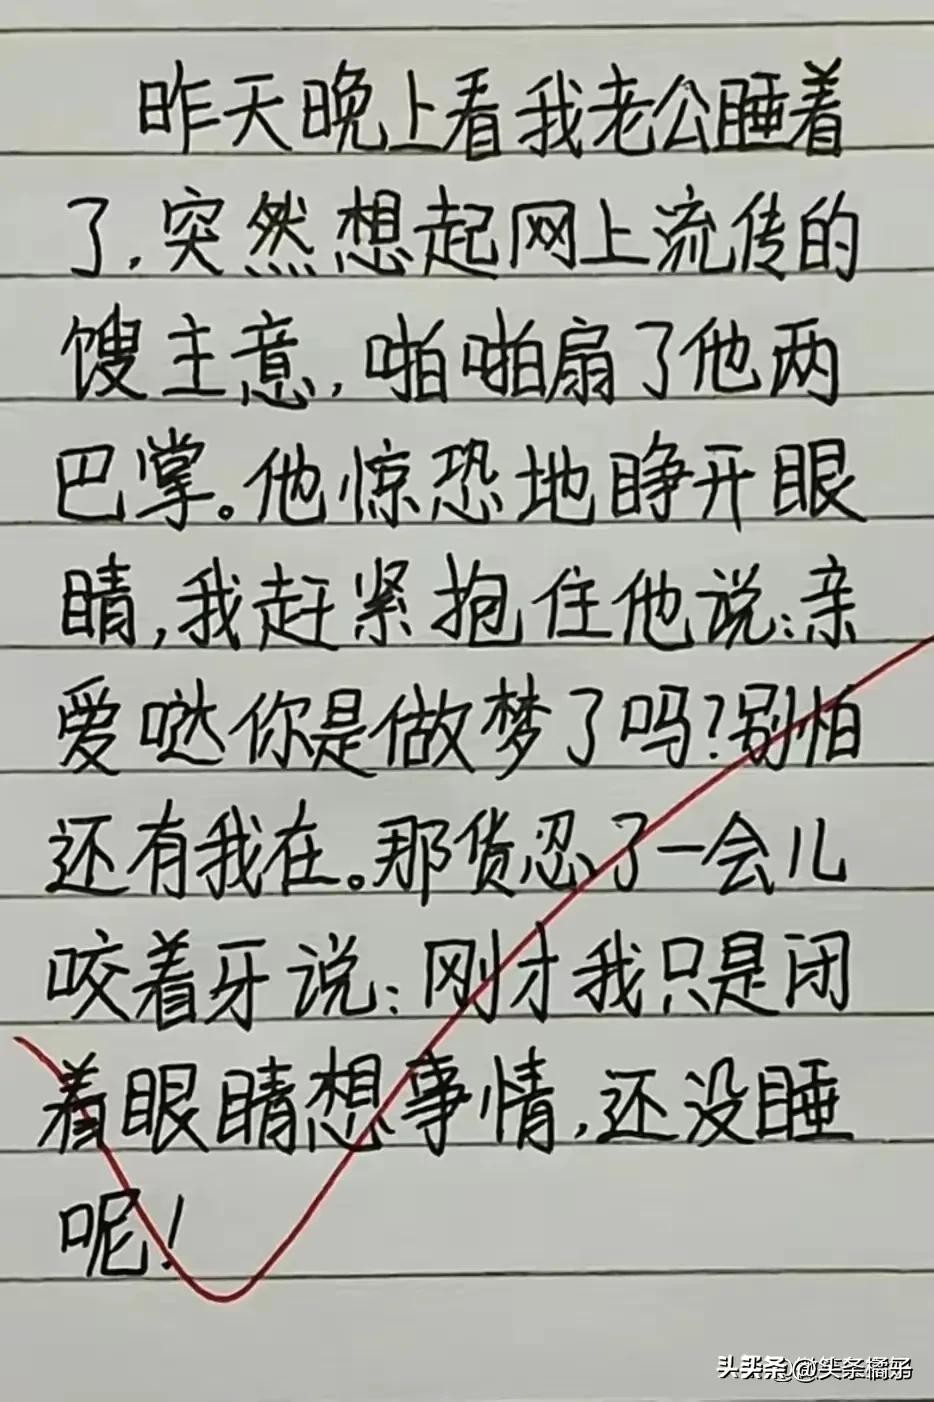 昨天晚上看我老公睡着
了,突然想起网上流传的
馊主意,啪啪扇了他两
巴掌。他惊恐地睁开眼
睛,我赶紧抱住他说:亲
爱哒你是做梦了吗?别怕
还有我在。那货忍了一会儿
咬着牙说:刚才我只是闭
着眼睛想事情,还没睡
呢!
头条 @笑条橘子